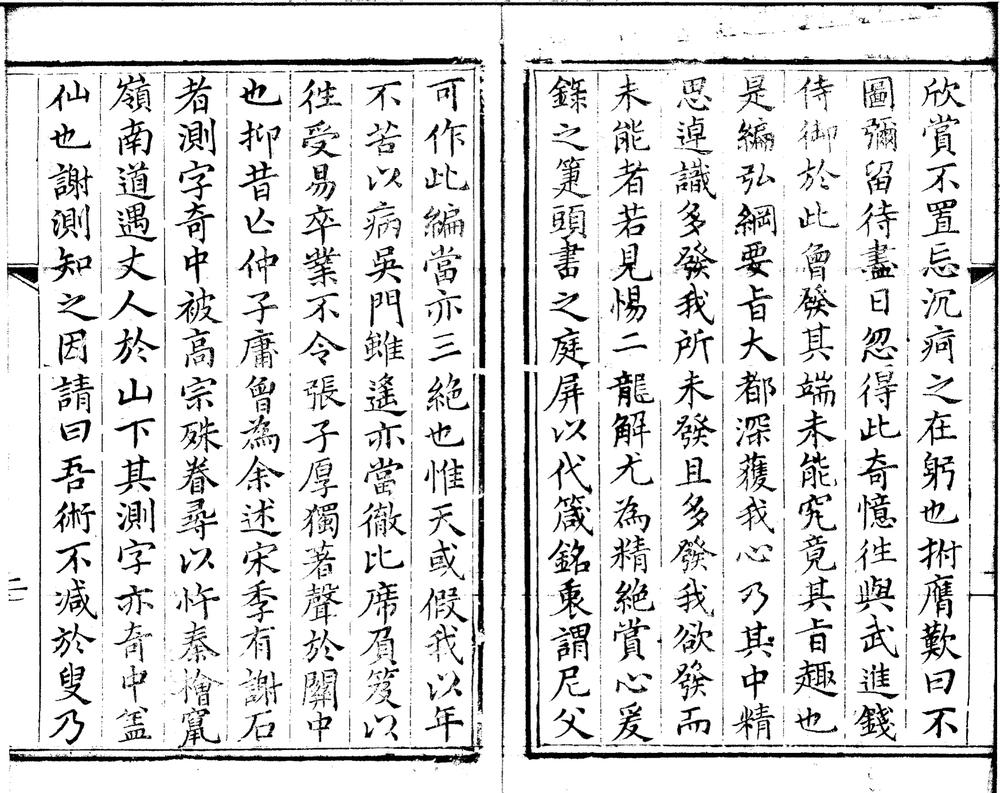 欣賞不置忘沉疴之在躬也拊膺歎曰不
圖彌留待盡日忽得此奇憶徃與武進錢
侍御於此曾發其端未能究竟其旨趣也
是編弘綱要旨大都深獲我心乃其中精
思逴識多發我所未發且多發我欲發而
未能者若見惕二龍解尤為精絕賞心爰
錄之箑頭書之庭屏以代箴銘乗謂尼父
可作此編當亦三絕也惟天或假我以年
不苦以病吳門雖遙亦當徹比席負笈以
徃受易卒業不令張子厚獨著聲於關中
也抑昔亾仲子庸曾為余述宋季有謝石
者測字奇中被高宗殊眷尋以忤秦檜竄
嶺南道遇丈人於山下其測字亦奇中盖
仙也謝測知之因請曰吾術不減於叟乃
二